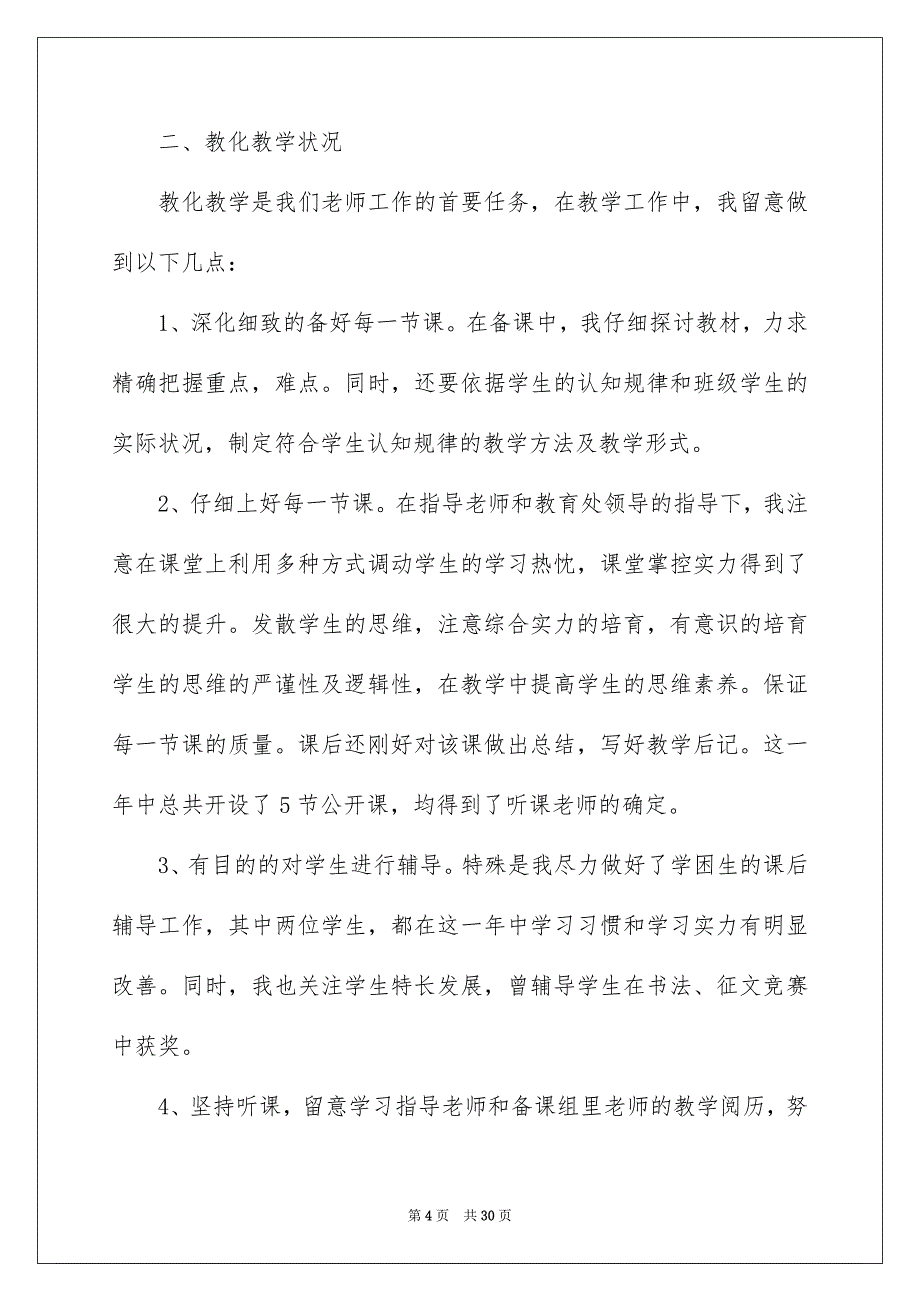 二、教化教学状况
教化教学是我们老师工作的首要任务，在教学工作中，我留意做
到以下几点：
1、深化细致的备好每一节课。在备课中，我仔细探讨教材，力求
精确把握重点，难点。同时，还要依据学生的认知规律和班级学生的
实际状况，制定符合学生认知规律的教学方法及教学形式。
2、仔细上好每一节课。在指导老师和教育处领导的指导下，我注
意在课堂上利用多种方式调动学生的学习热忱，课堂掌控实力得到了
很大的提升。发散学生的思维，注意综合实力的培育，有意识的培育
学生的思维的严谨性及逻辑性，在教学中提高学生的思维素养。保证
每一节课的质量。课后还刚好对该课做出总结，写好教学后记。这一
年中总共开设了 5 节公开课，均得到了听课老师的确定。
3、有目的的对学生进行辅导。特殊是我尽力做好了学困生的课后
辅导工作，其中两位学生，都在这一年中学习习惯和学习实力有明显
改善。同时，我也关注学生特长发展，曾辅导学生在书法、征文竞赛
中获奖。
4、坚持听课，留意学习指导老师和备课组里老师的教学阅历，努
第 4 页 共 30 页